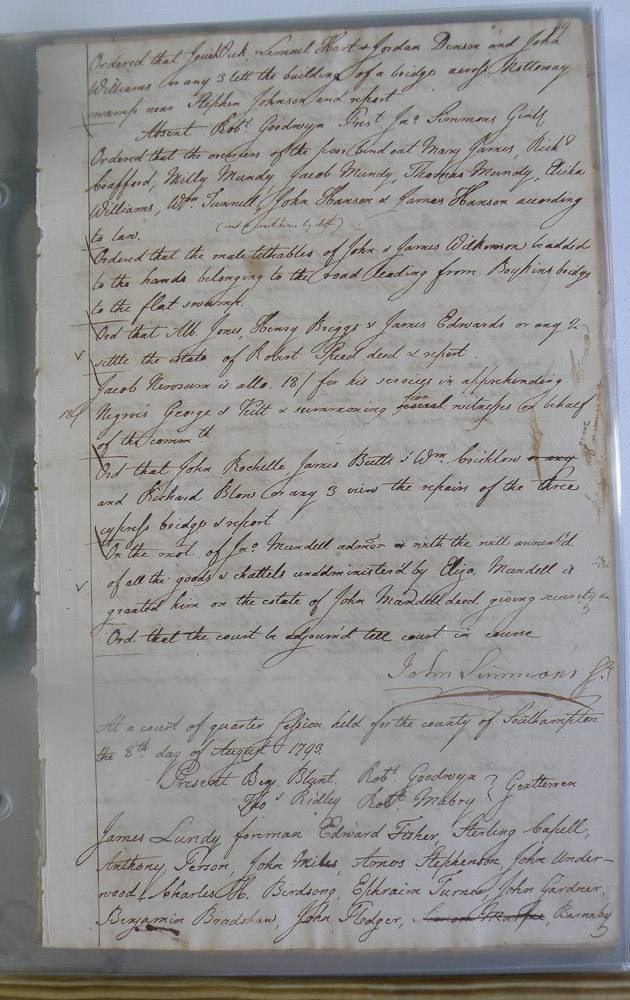 Ordered that Josiah Vick, Lemuel Hart & Jordan Denson and John
Williams or any 3 lett the building of a bridge across Nottoway
swamp near Stephen Johnson and report
Absent Robt. Goodwyn Prest. Jno. Simmons Gent
Ordered that the overseers of the poor bind out Mary James, Richd
Coafford, Milly Mundy, Jacob Mundy, Thomas Mundy, Elisha
Williams, Wm. Tunnell, John Hanson & James Hanson according
to law.
Ordered that the male tithables of John & James Wilkinson be added
to the hands belonging to the road leading from Boykins bridge
to the flat swamp.
Ord that Alb. Jones, Henry Briggs & James Edwards or any 2
settle the estate of Robert Reed decd & report.
Jacob Newsum is allo. 18/ for his services in apprehending
Negroes George & Pitt & summoning several witnesses on behalf
of the commth
Ord that John Rochelle James Butts & Wm. Crichlow or any
and Richard Blow or any 3 view the repairs of the three
cypress bridge & report
On the mot. of Jno. Mundell admor with the will annex'd
of all the goods & chattels unadministerd by Eliza. Mundell is
granted him on the estate of John Mundell decd. giving security &c
Ord that the court be adjourn'd tell court in course
John Simmons
At a court of quarter Session held for the county of Southampton
the 8th. day of August 1793
Present Benj Blunt Robt. Goodwyn
Thos Ridley Robt Mabry } Gentlemen
James Lundy foreman Edward Fisher, Sterling Capell,
Anthony Person, John Miles, Amos Stephenson, John Under-
wood, Charles H. Birdsong, Ephraim Turner, John Gardner,
Benjamin Bradshaw, John Fledger, Barnaby